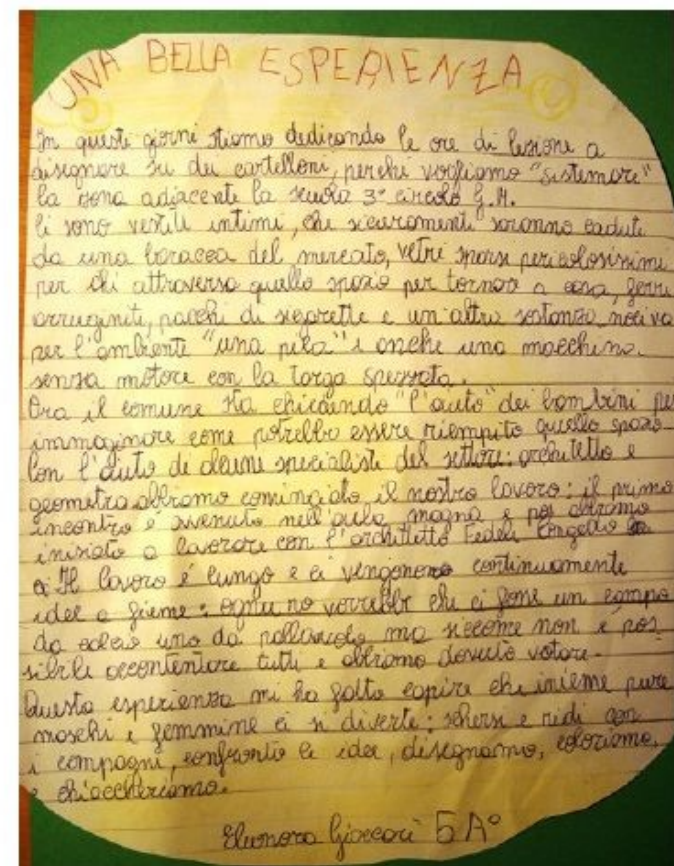 UNA BELLA ESPERIENZA
In questi giorni stiamo dedicando le ore di lezione a
disegnare su dei cartelloni, perchè vogliamo "sistemare"
la zona adiacente la scuola 3° circolo G.M.
Ci sono vestiti intimi, che sicuramenti saranno caduti
da una baracca del mercato, vetri sparsi pericolosissimi
per chi attraversa quello spazio per tornare a casa, ferri
arrugginiti, pacchi di sigarette e un'altra sostanza nociva
per l'ambiente "una pila" e anche una macchina
senza motore con la targa spezzata.
Ora il comune sta chiedendo "l'aiuto" dei bambini per
immaginare come potrebbe essere riempito quello spazio
Con l'aiuto di alcune specialiste del settore: architetto e
geometra abbiamo cominciato il nostro lavoro: il primo
incontro è avvenuto nell'aula magna e poi abbiamo
iniziato a lavorare con l'architetto Fedele
Il lavoro è lungo e ci vengono continuamente
idee a fiume: ognuno vorrebbe che ci fosse un campo
da calcio uno da pallavolo ma siccome non è pos
sibile accontentare tutti e abbiamo dovuto votare.
Questa esperienza mi ha fatto capire che insieme pure
maschi e femmine ci si diverte: scherzi e ridi con
i compagni, confronto le idee, disegnamo, coloriamo,
e chiaccheriamo.
Eleonora Giaccari 5 A°